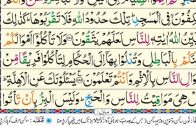 فِي الْمَسٰجِدِ ؕ تِلْكَ حُدُوْدُ اللّٰهِ فَلَا تَقْرَبُوْهَا ؕ كَذٰلِكَ
اٰيٰتِهٖ لِلنَّاسِ لَعَلَّهُمْ يَتَّقُوْنَ وَلَا تَاْكُلُوْۤا اَمْوَالَكُمْ
بِالْبَاطِلِ وَتُدْلُوْا بِهَاۤ اِلَى الْحُكَّامِ لِتَاْكُلُوْا فَرِيْقًا مِّنْ
النَّاسِ بِالْاِثْمِ وَاَنْتُمْ تَعْلَمُوْنَ يَسْـَٔلُوْنَكَ عَنِ الْاَهِلَّةِ
مَوَاقِيْتُ لِلنَّاسِ وَالْحَجِّ ؕ وَلَيْسَ الْبِرُّ بِاَنْ تَاْتُوا